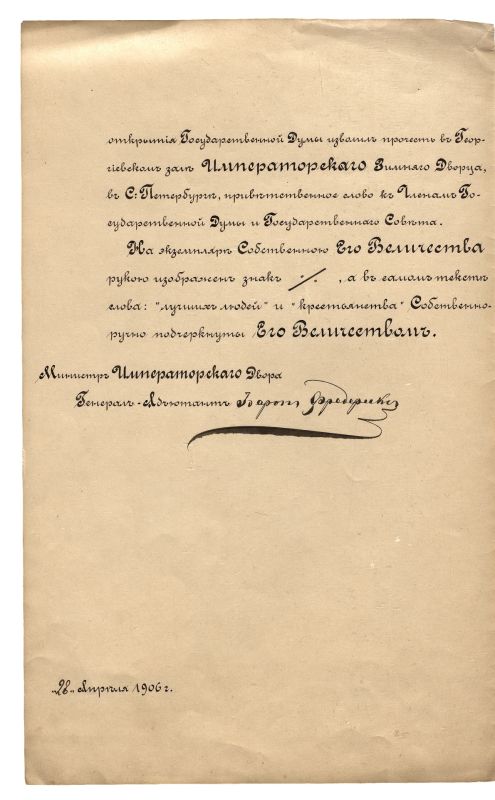 открытія Государственной Думы изволилъ прочесть въ Геор-
гіевскомъ залѣ Императорскаго Зимняго Дворца,
въ С: Петербургѣ, привѣтственное слово къ Членамъ Го-
сударственной Думы и Государственнаго Совѣта.
На экземплярѣ Собственною Его Величества
рукою изображенъ знакъ ·/. , а въ самомъ текстѣ
слова: "лучшихъ людей" и "крестьянства" Собственно-
ручно подчеркнуты Его Величествомъ.
Министръ Императорскаго Двора
Генералъ-Адъютантъ Баронъ Фредериксъ
„28" Апрѣля 1906 г.